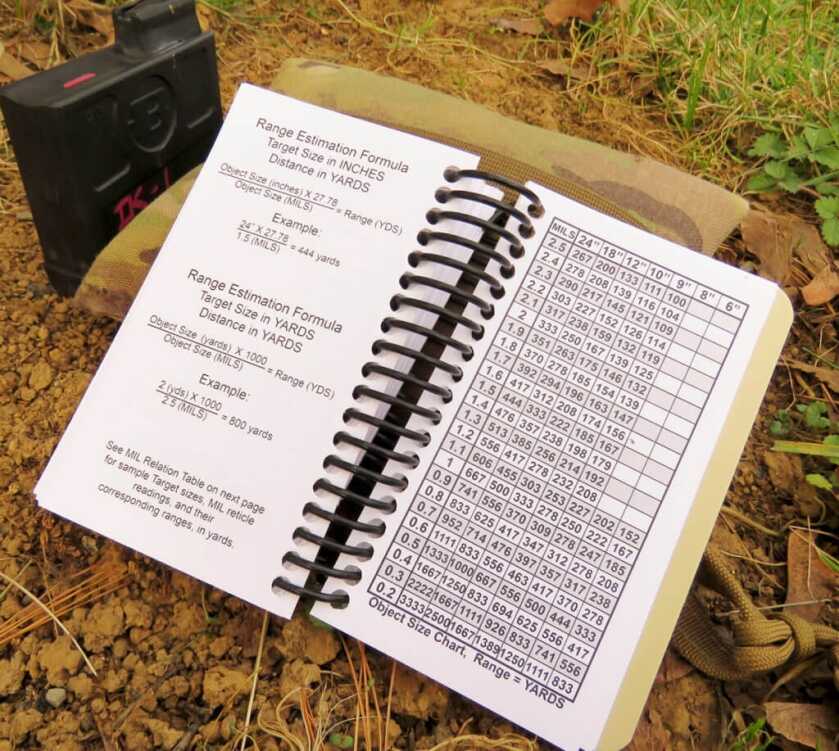 B
Range Estimation Formula
Target Size in INCHES
Distance in YARDS
Object Size (inches) X 27.78
Object Size (MILS) = Range (YDS)
Example:
24" X 27.78
1.5 (MILS) = 444 yards
Range Estimation Formula
Target Size in YARDS
Distance in YARDS
Object Size (yards) X 1000
Object Size (MILS) = Range (YDS)
Example:
2 (yds) X 1000
2.5 (MILS) = 800 yards
See MIL Relation Table on next page
for sample Target sizes, MIL reticle
readings, and their
corresponding ranges, in yards.
MILS 24" 18" 12" 10" 9" 8" 6"
2.5 267 200 133 111 100
2.4 278 208 139 116 104
2.3 290 217 145 121 109
2.2 303 227 152 126 114
2.1 317 238 159 132 119
2 333 250 167 139 125
1.9 351 263 175 146 132
1.8 370 278 185 154 139
1.7 392 294 196 163 147
1.6 417 312 208 174 156
1.5 444 333 222 185 167
1.4 476 357 238 198 179
1.3 513 385 256 214 192
1.2 556 417 278 232 208
1.1 606 455 303 253 227 202 152
1 667 500 333 278 250 222 167
0.9 741 556 370 309 278 247 185
0.8 833 625 417 347 312 278 208
0.7 952 714 476 397 357 317 238
0.6 1111 833 556 463 417 370 278
0.5 1333 1000 667 556 500 444 333
0.4 1667 1250 833 694 625 556 417
0.3 2222 1667 1111 926 833 741 556
0.2 3333 2500 1667 1389 1250 1111 833
Object Size Chart, Range = YARDS